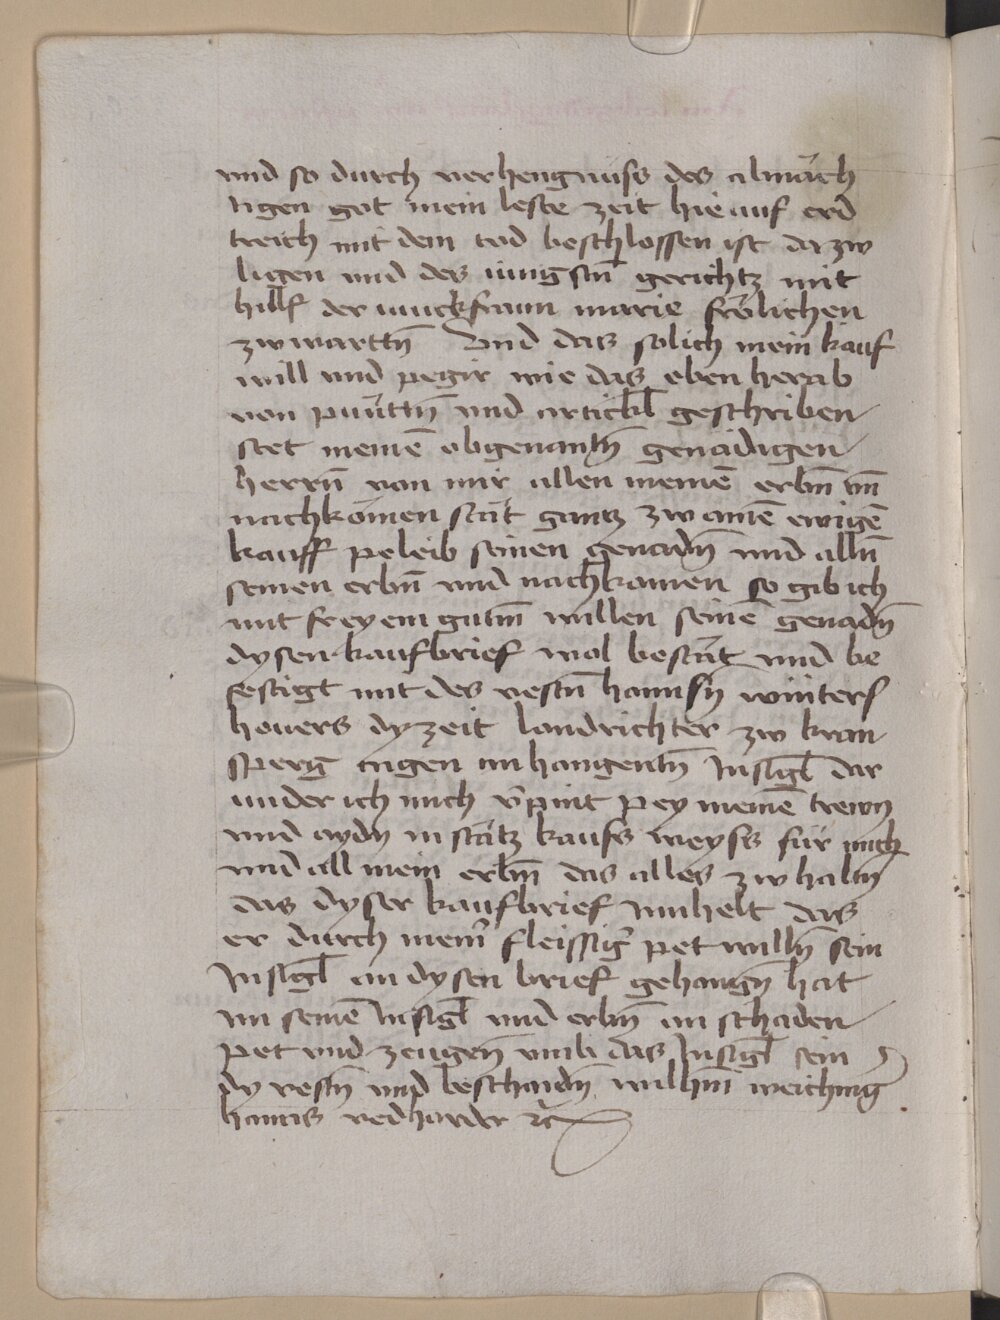 und so durch verhengnüss des almäch
tigen got mein leste zeit hie auf erd
treich mit dem tod beschlossen ist da zw
ligen und des iungstn̄ gerichtz mit
hilff der iunckfraun marie frölichen
zw warttn̄ Und das solich mein kauf
will und pegir wie das oben herab
von punttn̄ und artickl̄ geschriben
stet meinē obgenantn̄ genädigen
herrn̄ von mir allen meinē erbn̄ un̄
nachkömen stät gantz zw ainē ewigē
kauff peleib seinen genadn̄ und alln̄
seinen erbn̄ und nachkomen so gib ich
mit freyem gutm̄ willen seinē genadn̄
dysen kaufbrief wol bestät und be
festigt mit des vestn̄ hannsn̄ winters
hovers dyzeit landrichter zw kran
sperg aigen anhangentn̄ Insigl̄ dar
under ich mich v̄pint pey meinē trewn̄
und aydn̄ in stätz kaufs weyss für mich
und all mein erbn̄ das alles zw haltn̄
das dyser kaufbrief innhelt das
er durch mein̄ fleissiḡ pet willn̄ sein
Insigl̄ an dysen brief gehangn̄ hat
im seinē Insigl̄ und erbn̄ an schaden
pet und zeugen̄ umb das Insigl̄ sein
dy vestn̄ und beschaidn̄ wilhm̄ weichinḡ
hanns redharder ꝛc̄